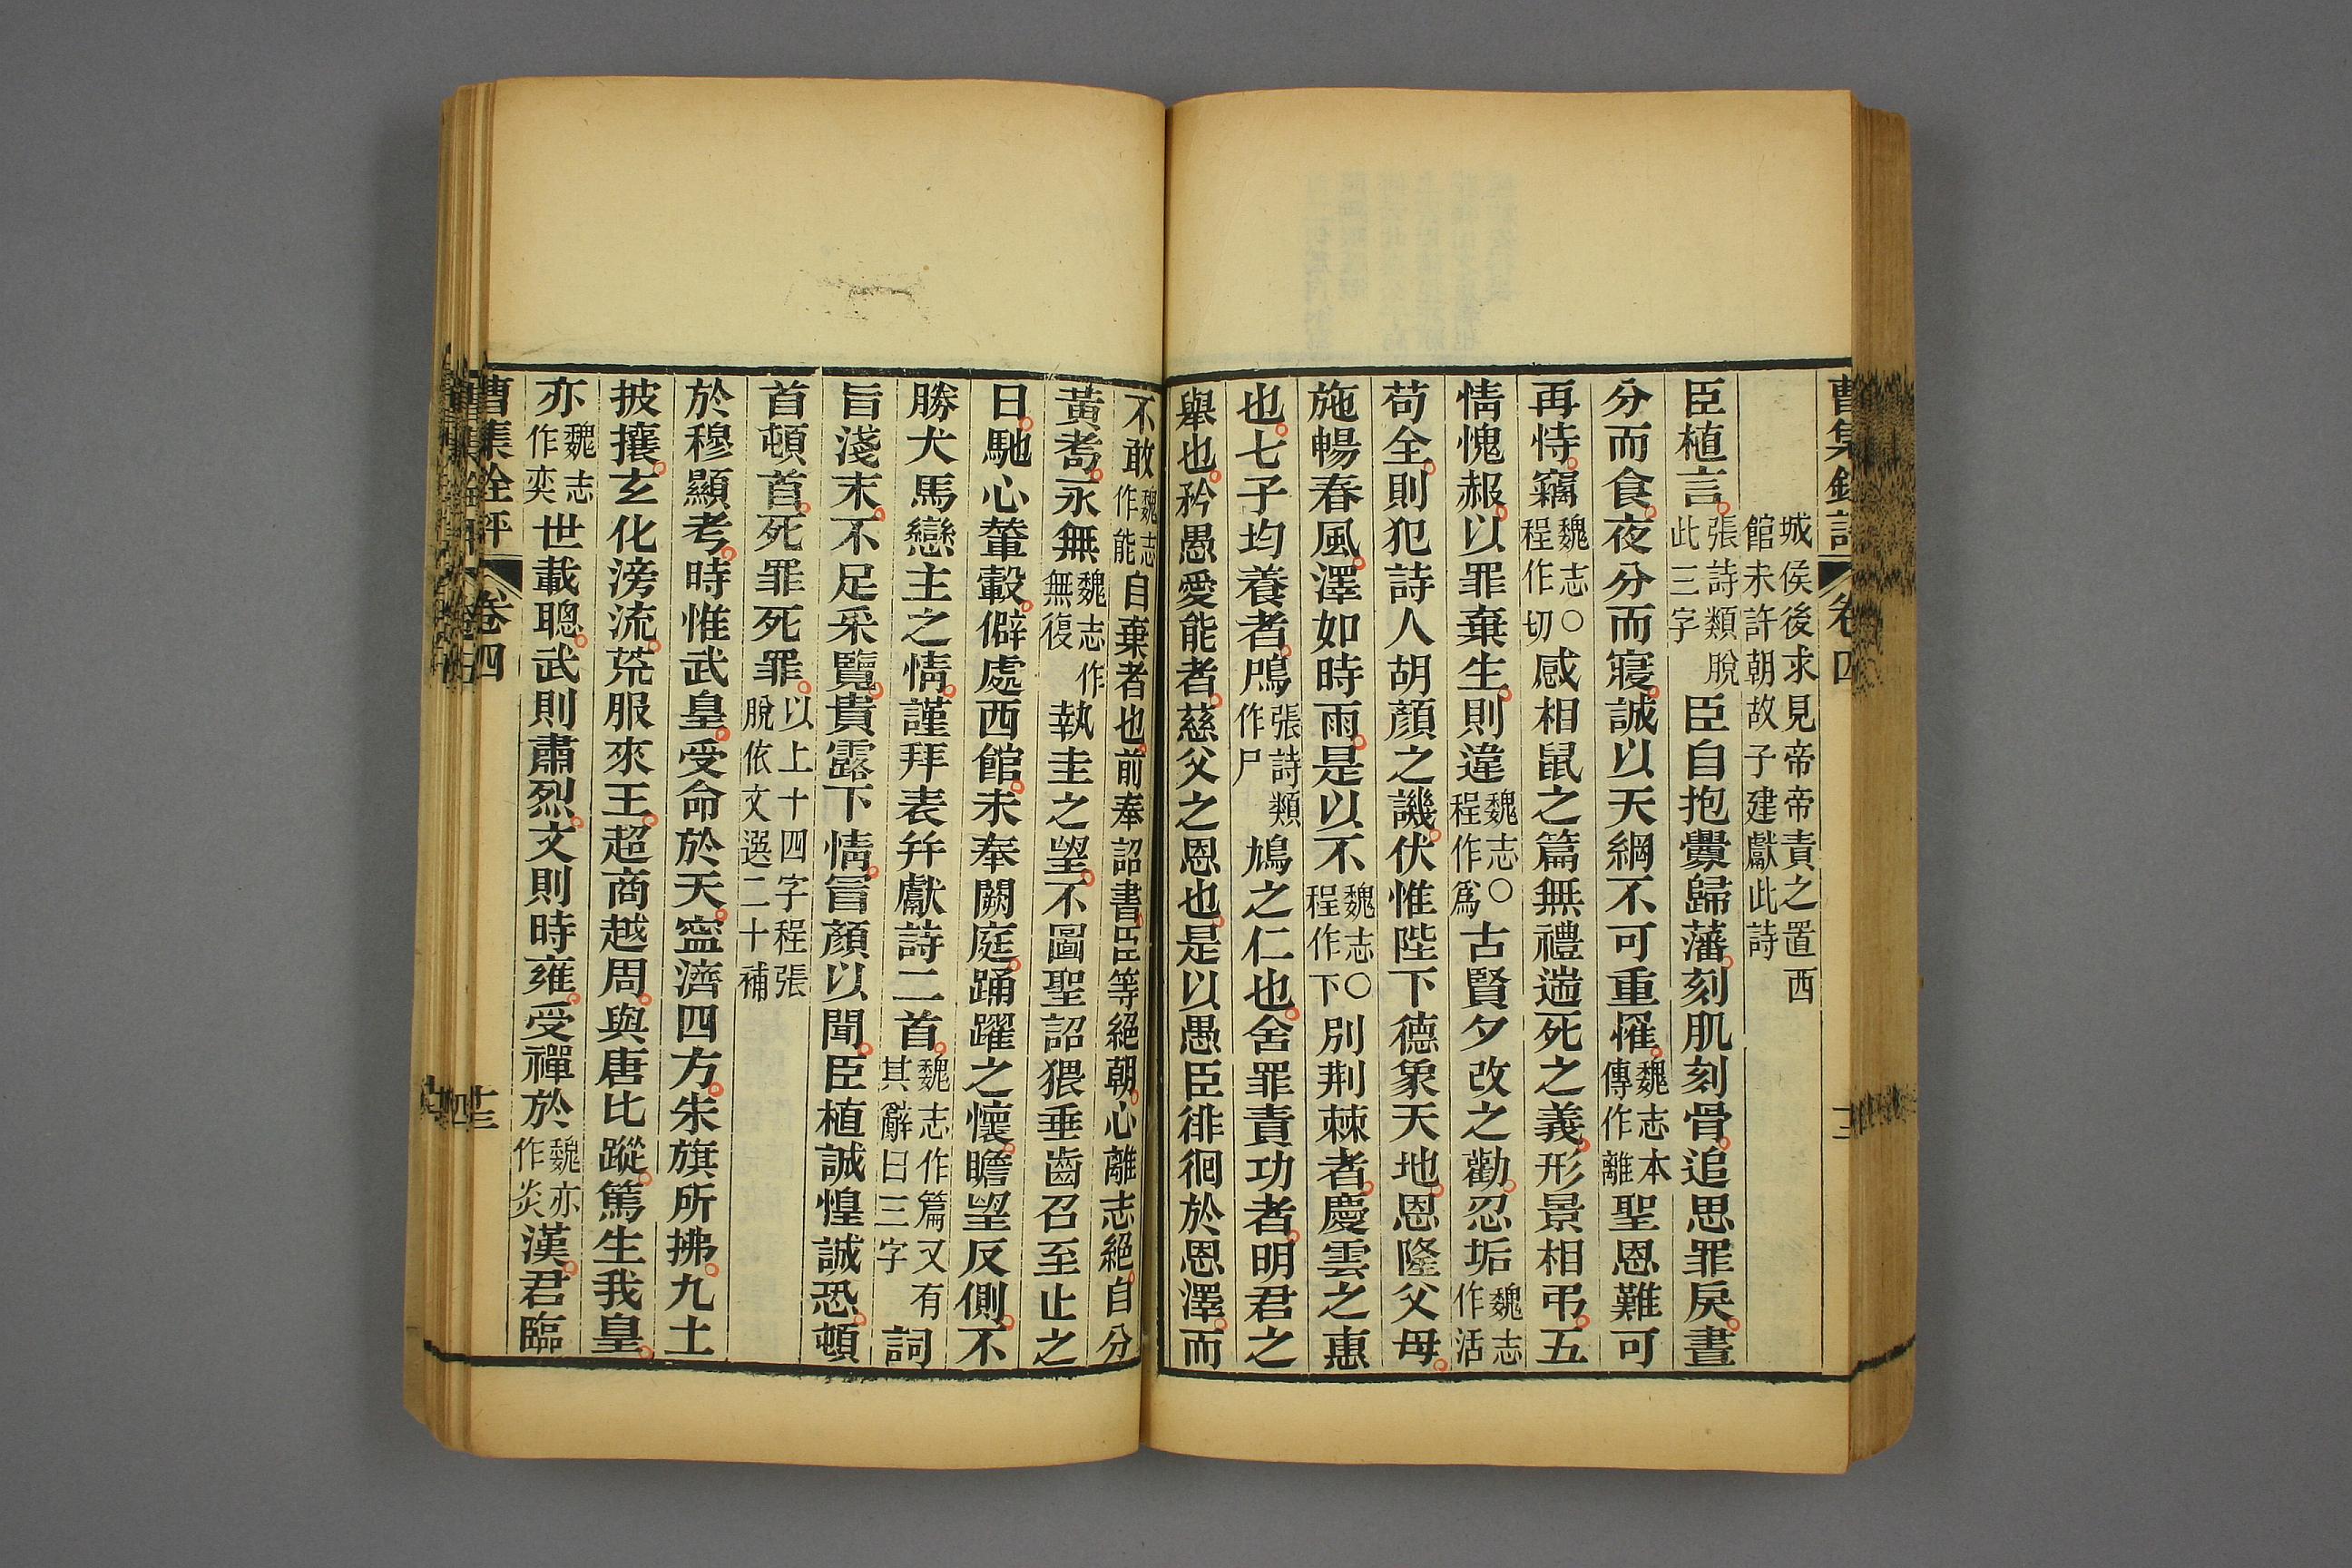 城侯後求見帝帝責之置西
館未許朝故子建獻此詩
臣植言張詩類脫此三字臣自抱釁歸藩刻肌刻骨追思罪戾晝
分而食夜分而寢誠以天網不可重罹魏志本傳作離聖恩難可
再恃竊魏志〇程作切感相鼠之篇無禮遄死之義形景相弔五
情愧赧以罪棄生則違魏志〇程作爲古賢夕改之勸忍垢魏志作活
苟全則犯詩人胡顏之譏伏惟陛下德象天地恩隆父母
施暢春風澤如時雨是以不魏志〇程作下別荆棘者慶雲之惠
也七子均養者鳲張詩類作尸鳩之仁也舍罪責功者明君之
舉也矜愚愛能者慈父之恩也是以愚臣徘徊於恩澤而
不敢魏志作能自棄者也前奉詔書臣等絕朝心離志絕自分
黃耇永無魏志作無復執圭之望不圖聖詔猥垂齒召至止之
日馳心輦轂僻處西館未奉闕庭踊躍之懷瞻望反側不
勝犬馬戀主之情謹拜表幷獻詩二首魏志作篇又有其辭曰三字詞
旨淺末不足采覽貴露下情冒顏以聞臣植誠惶誠恐頓
首頓首死罪死罪以上十四字程張脫依文選二十補
於穆顯考時惟武皇受命於天寍濟四方朱旗所拂九土
披攘玄化滂流荒服來王超商越周與唐比蹤篤生我皇
亦魏志作奕世載聰武則肅烈文則時雍受禪於魏亦作炎漢君臨
曹集銓評 卷四 十三